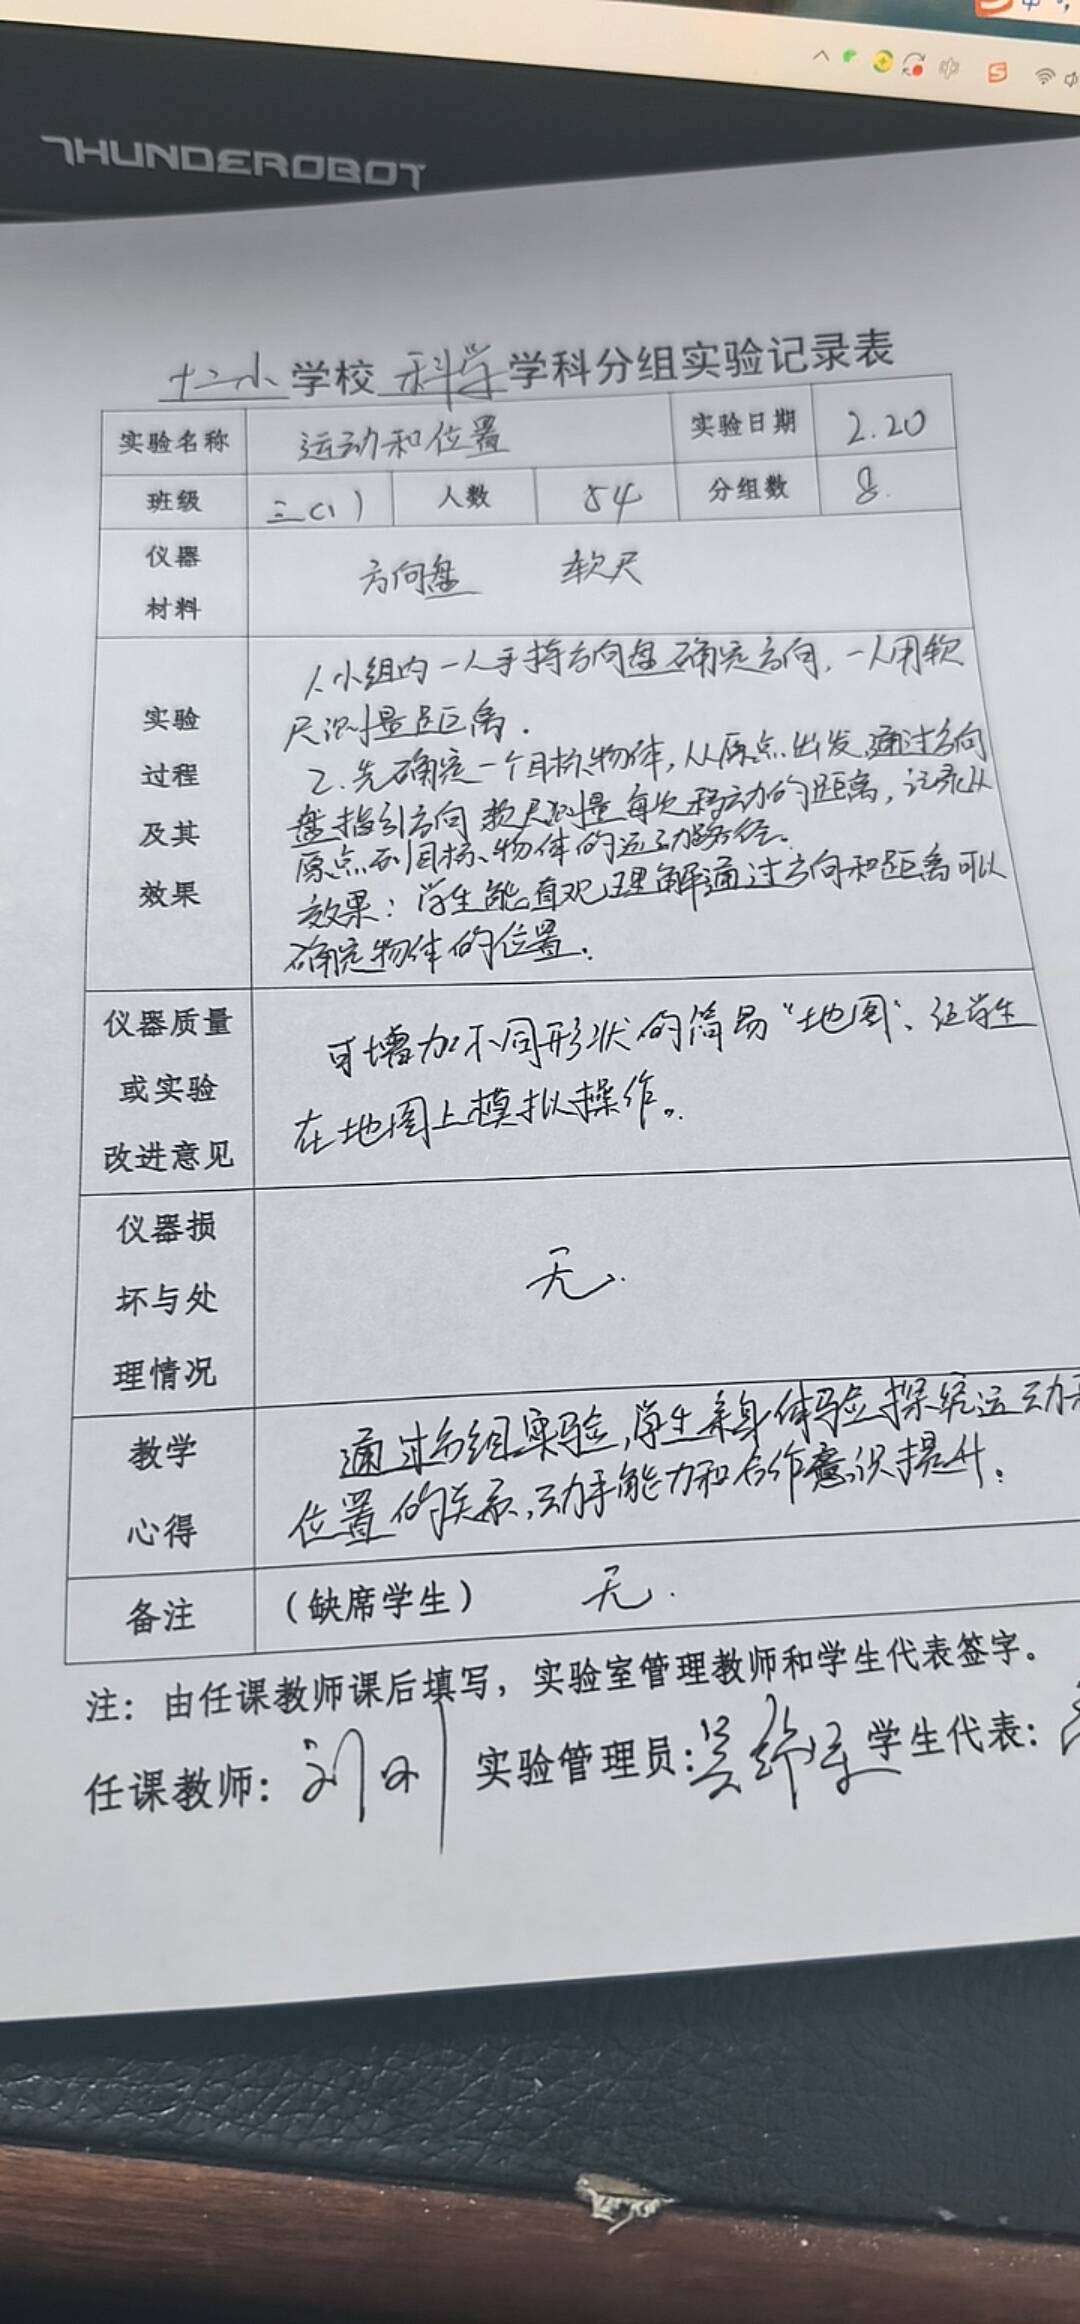 THUNDEROBOT
十二小学校科学学科分组实验记录表
实验名称 运动和位置 实验日期 2.20
班级 三(1) 人数 54 分组数 8.
仪器
材料
方向盘 软尺
实验
过程
及其
效果
1.小组内一人手持方向盘确定方向,一人用软
尺测量距离.
2.先确定一个目标物体,从原点出发,通过方向
盘指引方向 软尺测量每次移动的距离,记录从
原点到目标物体的运动路径。
效果:学生能直观理解通过方向和距离可以
确定物体的位置.
仪器质量
或实验
改进意见
可增加不同形状的简易“地图”,让学生
在地图上模拟操作。
仪器损
坏与处
理情况
无.
教学
心得
通过分组实验,学生亲身体验探究运动
位置的关系,动手能力和合作意识提升。
备注 (缺席学生) 无.
注:由任课教师课后填写,实验室管理教师和学生代表签字。
任课教师: 刘 实验管理员:吴 学生代表: